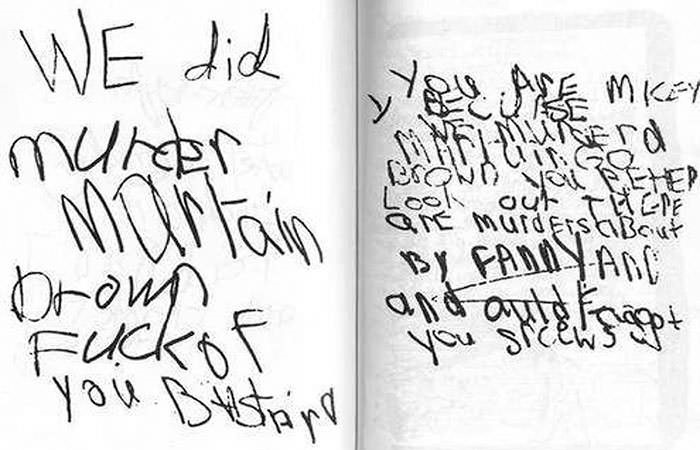 WE did
murder
martain
brown
Fuckof
you BAstard
You ArE micEy
y BECuRSE
WE murdErd
MArtain GO
Brown you BEtEr
Look out THErE
arE murdErs aBout
By FANNYAND
and auld Faggot
you srcews